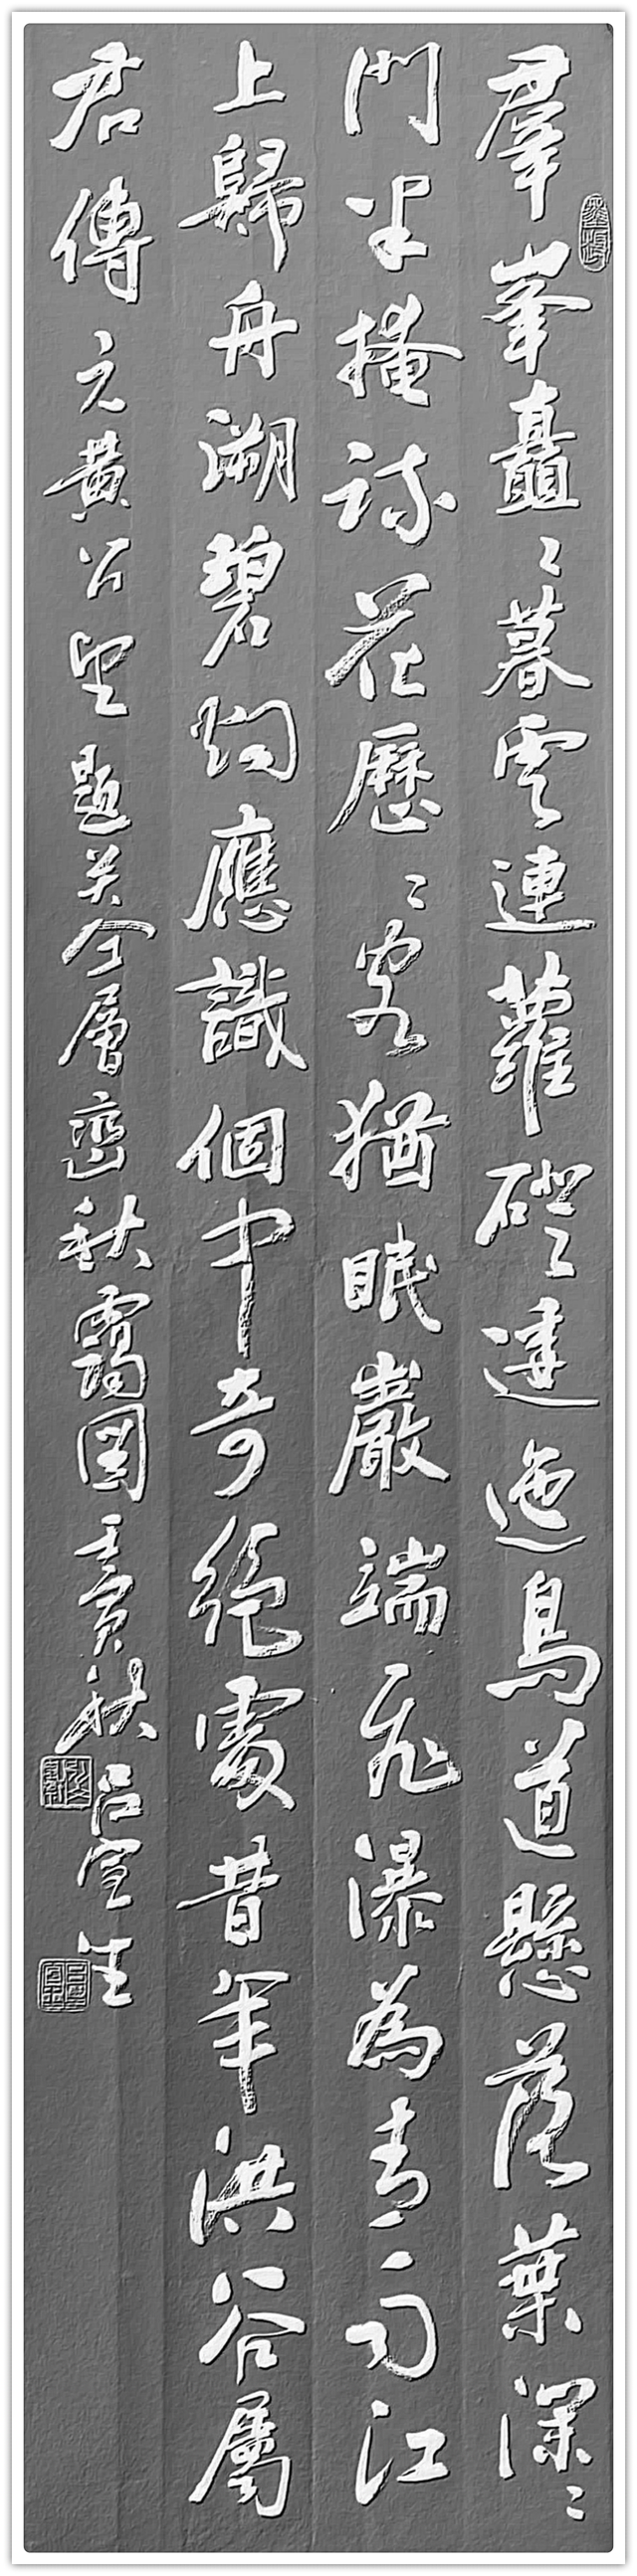 羣峯矗〻暮雲連蘿磴逶迤鳥道懸落葉深〻
門半掩疏花歷〻客猶眠巖端飛瀑為青雨江
上歸舟溯碧烟應識個中奇絕處昔年洪谷屬
君傳 元黃公望題关仝層巒秋靄圖 壬寅秋 吕生